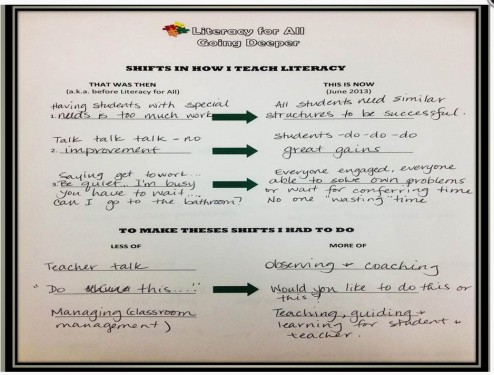 Literacy for All
Going Deeper
SHIFTS IN HOW I TEACH LITERACY
THAT WAS THEN
(a.k.a. before Literacy for All)
Having students with special
1. needs is too much work
Talk talk talk – no
2. improvement
Saying get to work...
3. Be quiet... I'm busy
you have to wait....
Can I go to the bathroom?
THIS IS NOW
(June 2013)
All students need similar
structures to be successful.
Students – do – do – do
great gains
Everyone engaged, everyone
able to solve own problems
or wait for conferring time
No one "wasting" time
TO MAKE THESES SHIFTS I HAD TO DO
LESS OF
Teacher talk
"Do this...."
Managing (classroom
management)
MORE OF
Observing + coaching
Would you like to do this or
this?
Teaching, guiding +
learning for student +
teacher.